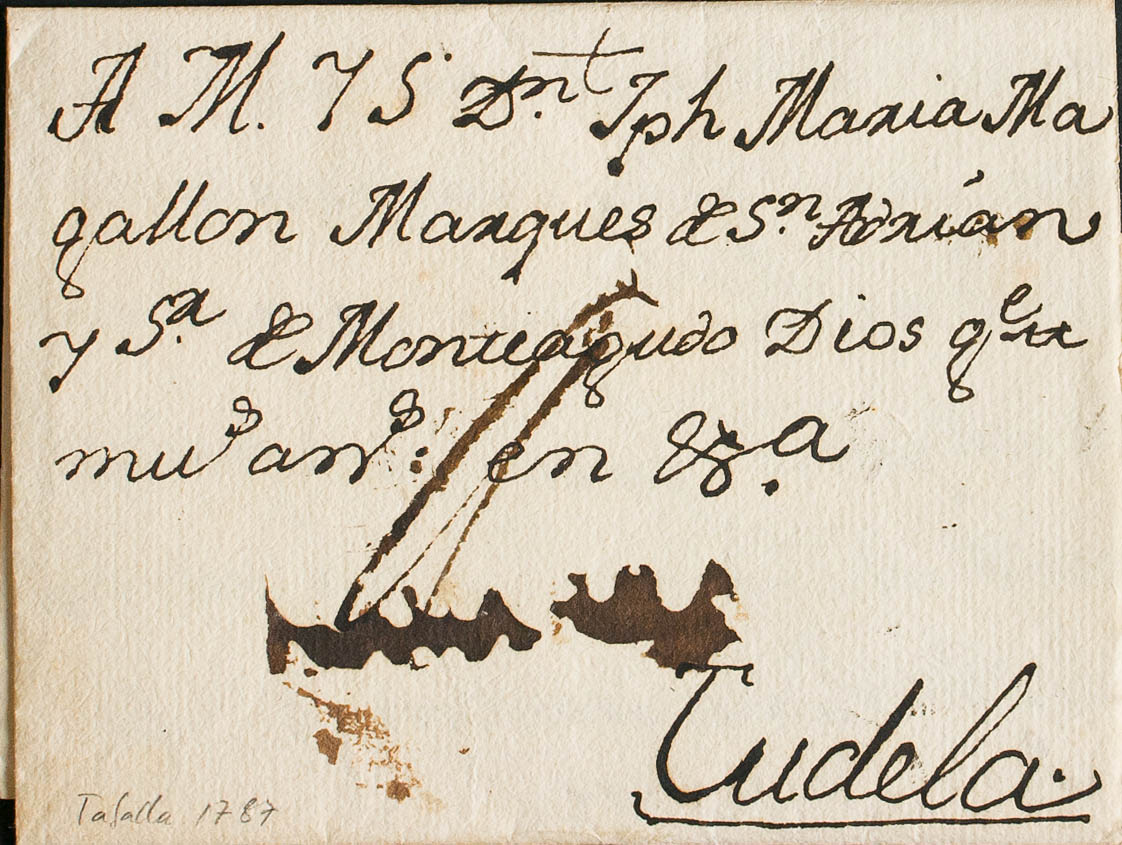 A M. Y S. Dn. Jph Maria Ma
gallon Marques de Sn. Adrián
y Sa. de Monteagudo Dios gue
mus. ans. en
Tudela.
Tafalla 1787